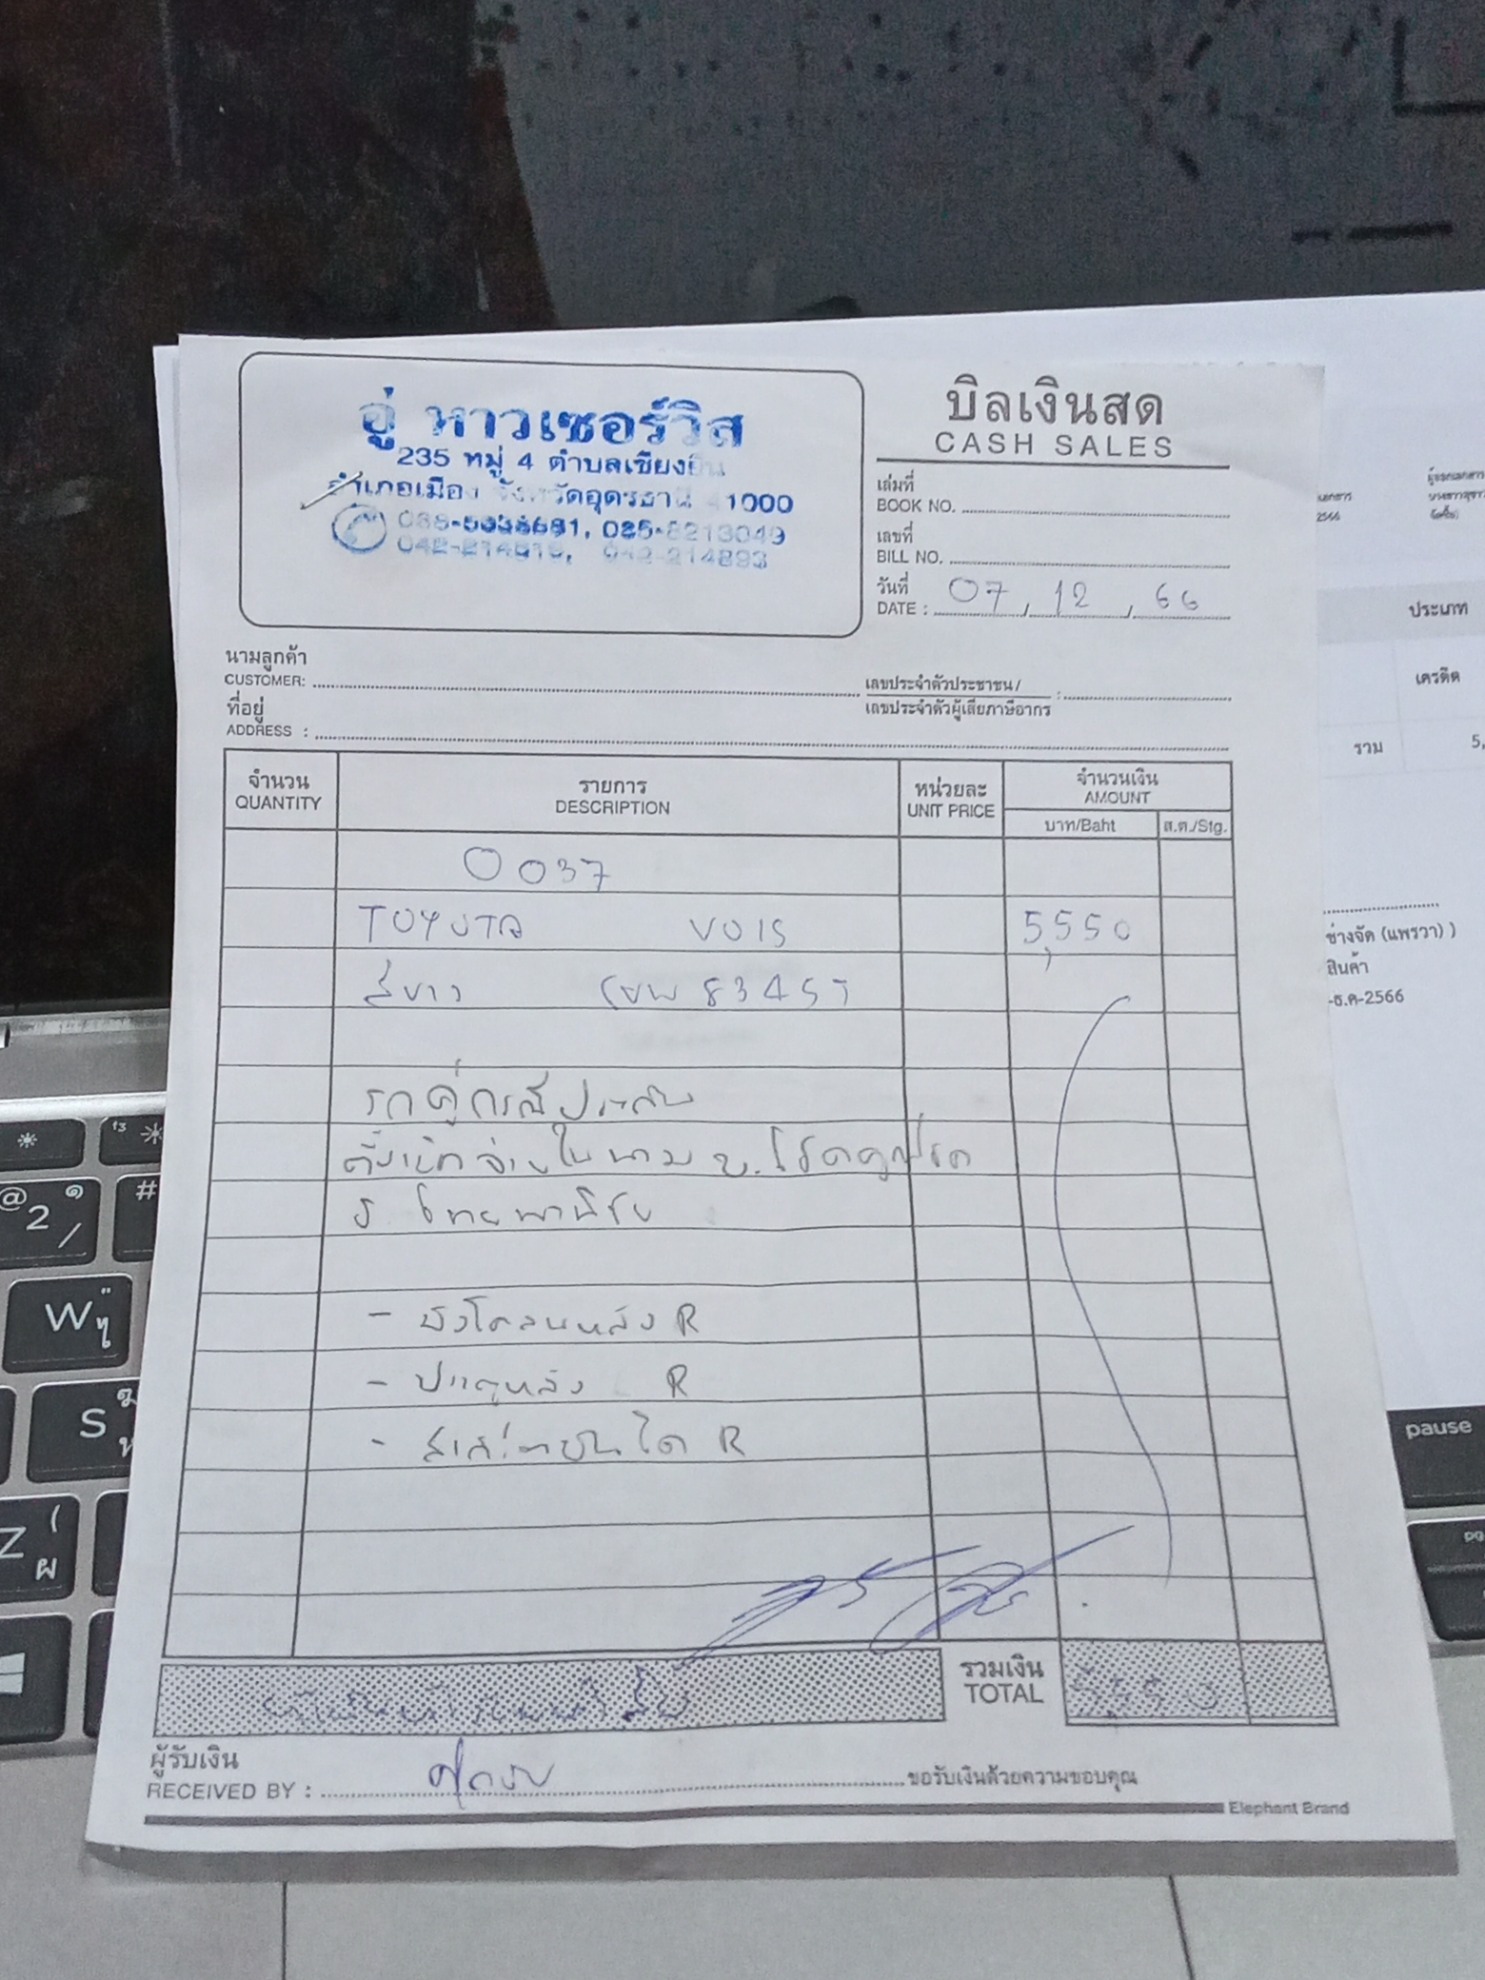 อู่ หาวเซอร์วิส
235 หมู่ 4 ตำบลเชียงยืน
อำเภอเมือง จังหวัดอุดรธานี 41000
042-214893
บิลเงินสด
CASH SALES
เล่มที่
BOOK NO.
เลขที่
BILL NO.
วันที่
DATE : 07, 12, 66
นามลูกค้า
CUSTOMER:
เลขประจำตัวประชาชน/
เลขประจำตัวผู้เสียภาษีอากร
ที่อยู่
ADDRESS :
จำนวน
QUANTITY
รายการ
DESCRIPTION
หน่วยละ
UNIT PRICE
จำนวนเงิน
AMOUNT
บาท/Baht ส.ต./Stg.
0037
TOYOTA VOIS 5,550
สีขาว
รถคู่กรณีประกัน
ตั้งเบิกจ่ายในนาม
- บังโคลนหลัง R
- ประตูหลัง R
R
รวมเงิน
TOTAL
5,550
ผู้รับเงิน
RECEIVED BY :
ขอรับเงินด้วยความขอบคุณ
Elephant Brand
เอกสาร
2566
ผู้ออกเอกสาร
ประเภท
เครดิต
รวม 5,
ช่างจัด (แพรวา) )
สินค้า
-ธ.ค-2566
@ 2 ๑ /
#
W ไ
S
Z ( ผ
pause